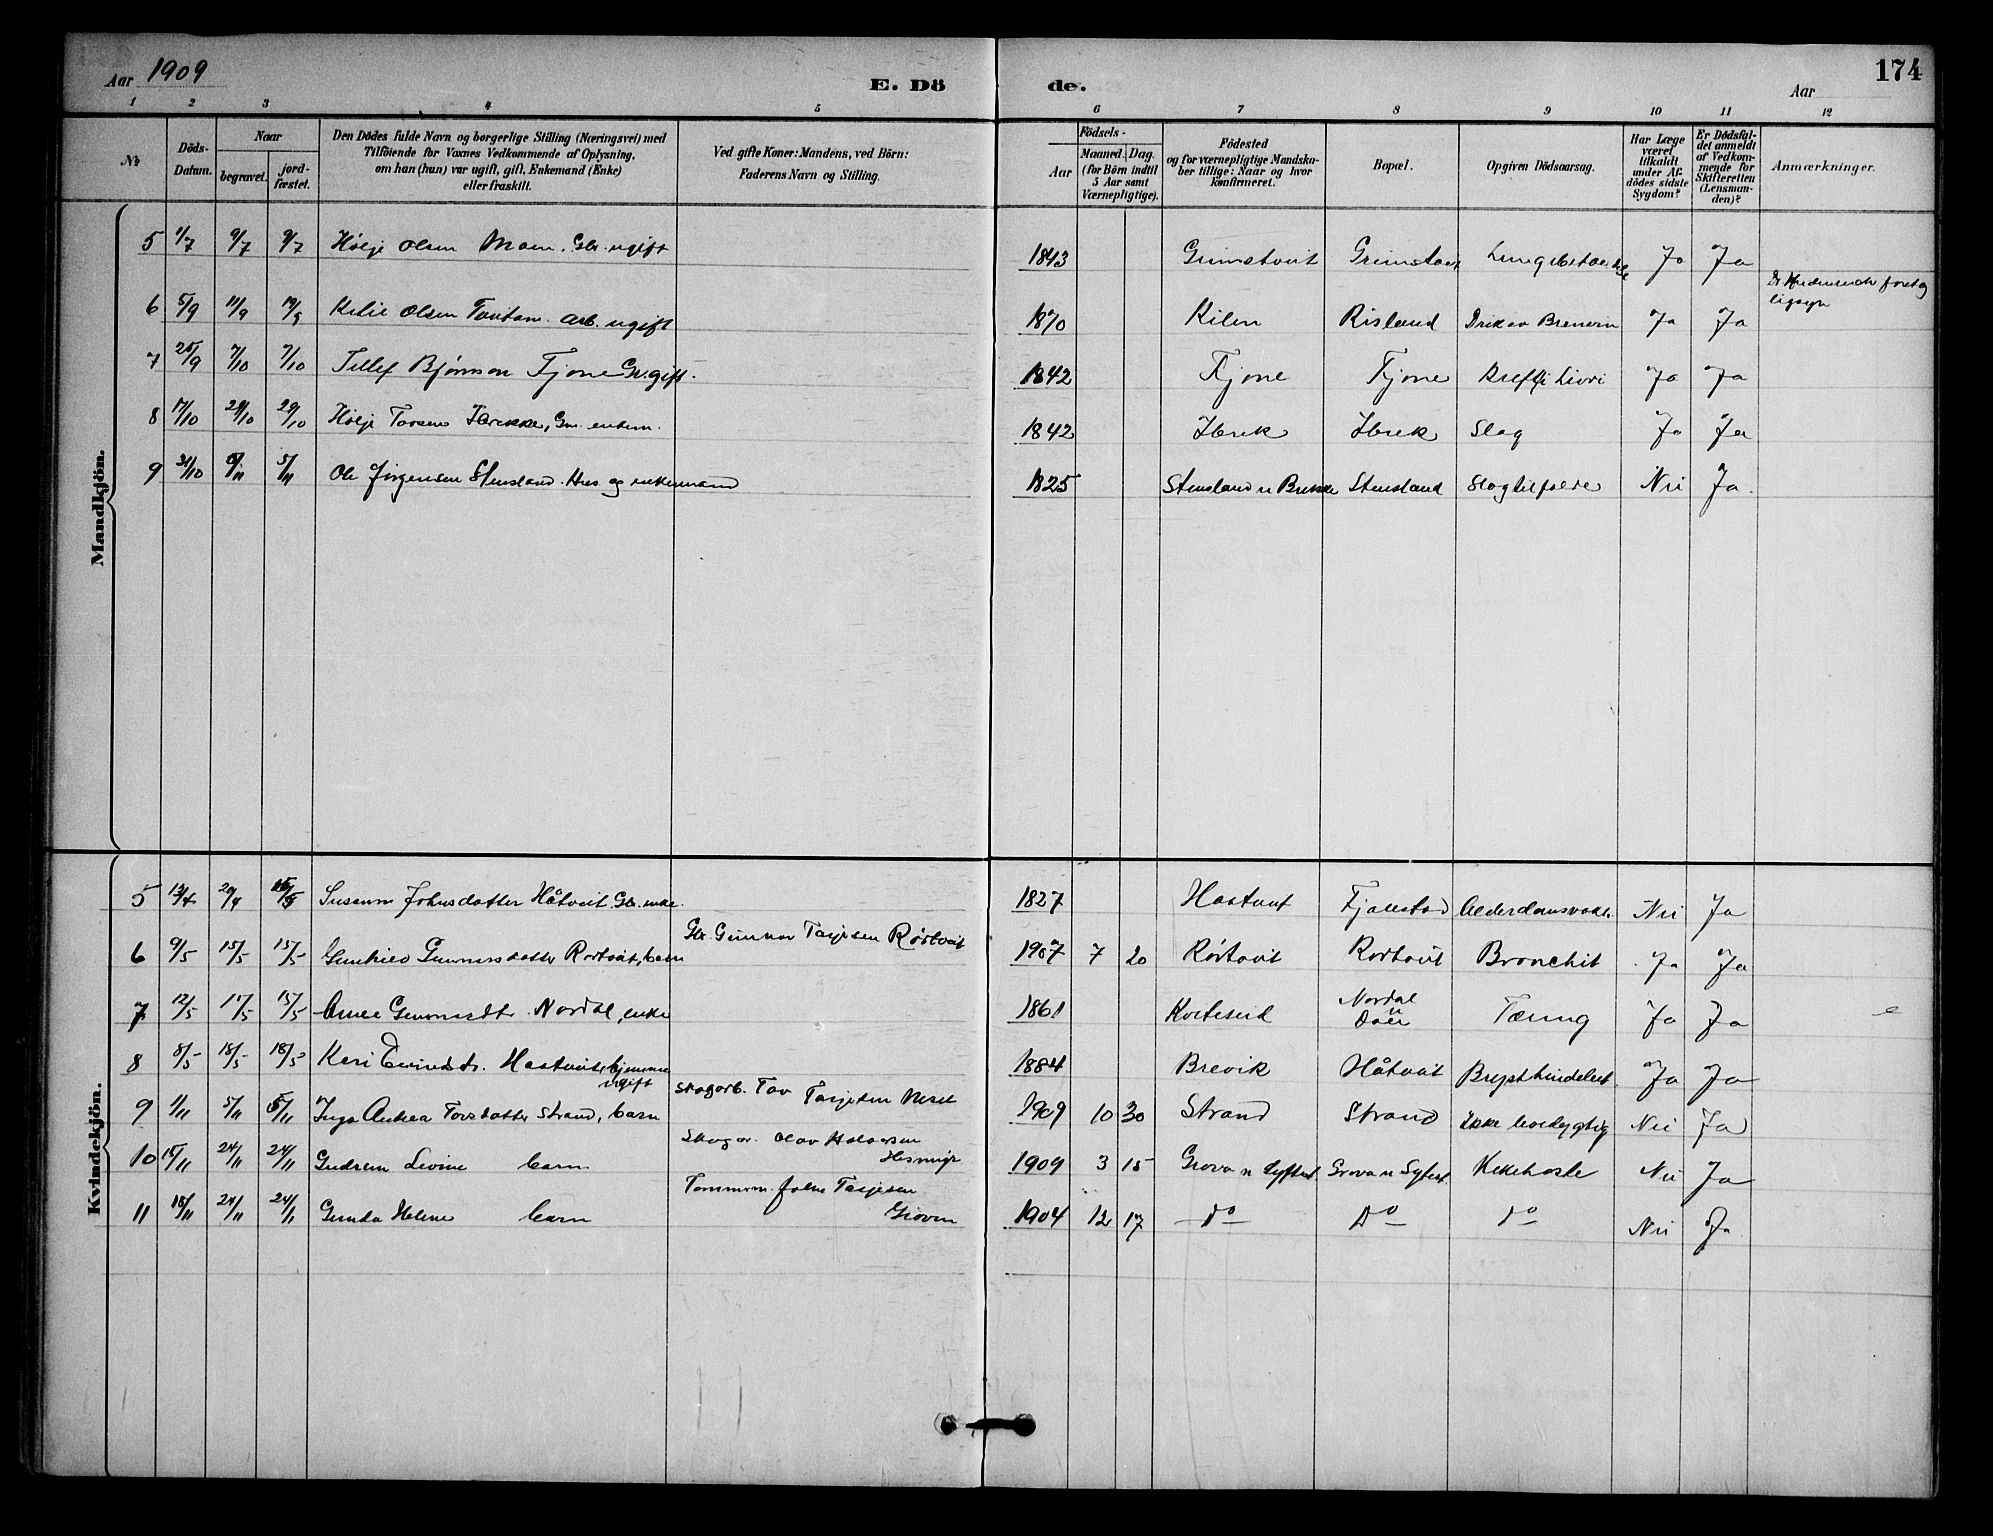 Aar 1909
E. Dö
de.
Aar
174
1 2 3 4 5 6 7 8 9 10 11 12
No
Döds-Datum.
Naar
begravet.
jord-fæstet.
Den Dödes fulde Navn og borgerlige Stilling (Næringsvei) med
Tilföiende for Voxnes Vedkommende af Oplysning,
om han (hun) var ugift, gift, Enkemand (Enke)
eller fraskilt.
Ved gifte Koner: Mandens, ved Börn:
Faderens Navn og Stilling.
Födsels-
Aar
Maaned. Dag.
(for Börn indtil
5 Aar samt
Værnepligtige).
Födested
og for værnepligtige Mandska-
ber tillige: Naar og hvor
konfirmeret.
Bopæl.
Opgiven Dödsaarsag.
Har Læge
været
tilkaldt
under Af-
dödes sidste
Sygdom?
Er Dödsfal-
det anmeldt
af Vedkom-
mende for
Skifteretten
(Lensman-
den)?
Anmærkninger.
Mandkjön.
5 1/7 9/7 9/7 Hølje Olsen Moen. Gbr. ugift 1843 Grimstvit Ja Ja
6 5/9 11/9 19/9 Kilie Olsen arb. ugift 1870 Kilen Risland Drik av Brenevin Ja Ja
7 25/9 7/10 7/10 Tellef Bjørnson Fjone Gbr. gift. 1842 Fjone Fjone Ja Ja
8 17/10 29/10 29/10 Hølje 1842 Slag Ja Ja
9 31/10 5/11 5/11 Ole Jørgensen Stensland. Hus og enkemand 1825 Stensland u Brekke Stensland Slagtilfælde Nei Ja.
Kvindekjön.
5 12/4 29/4 Susanne Johnsdatter Håtveit Gbr. enke. 1827 Haatveit Alderdomssvakh. Nei Ja
6 9/5 15/5 15/5 Gunhild Gunnarsdatter Rørtveit, barn Gbr. Gunnar Tarjesen Rørtveit 1907 7 20 Rørtveit Rørtveit Bronchit Ja Ja
7 12/5 15/5 15/5 Anne Gunnarsdtr. Nordal, enke 1861 Kviteseid Nordal u Tæring Ja Ja
8 8/5 18/5 18/5 Kari Eivindstr. Haatveit, hjemme ugift 1884 Brevik Håtveit Ja Ja
9 1/11 5/11 5/11 Inga Andrea Torsdatter Strand, barn Skogarb. Tov Tarjesen Neset 1909 10 30 Strand Strand Ikke levedygtig Nei Ja
10 15/11 24/11 24/11 Gudrun Lovine barn Skogar. Olav Halvorsen 1909 3 15 Grova u Grova u Kikhoste Nei Ja
11 18/11 24/11 24/11 Gunda Helene barn Tømmerm. John Tarjesen Groven 1904 12 17 do do do Nei Ja